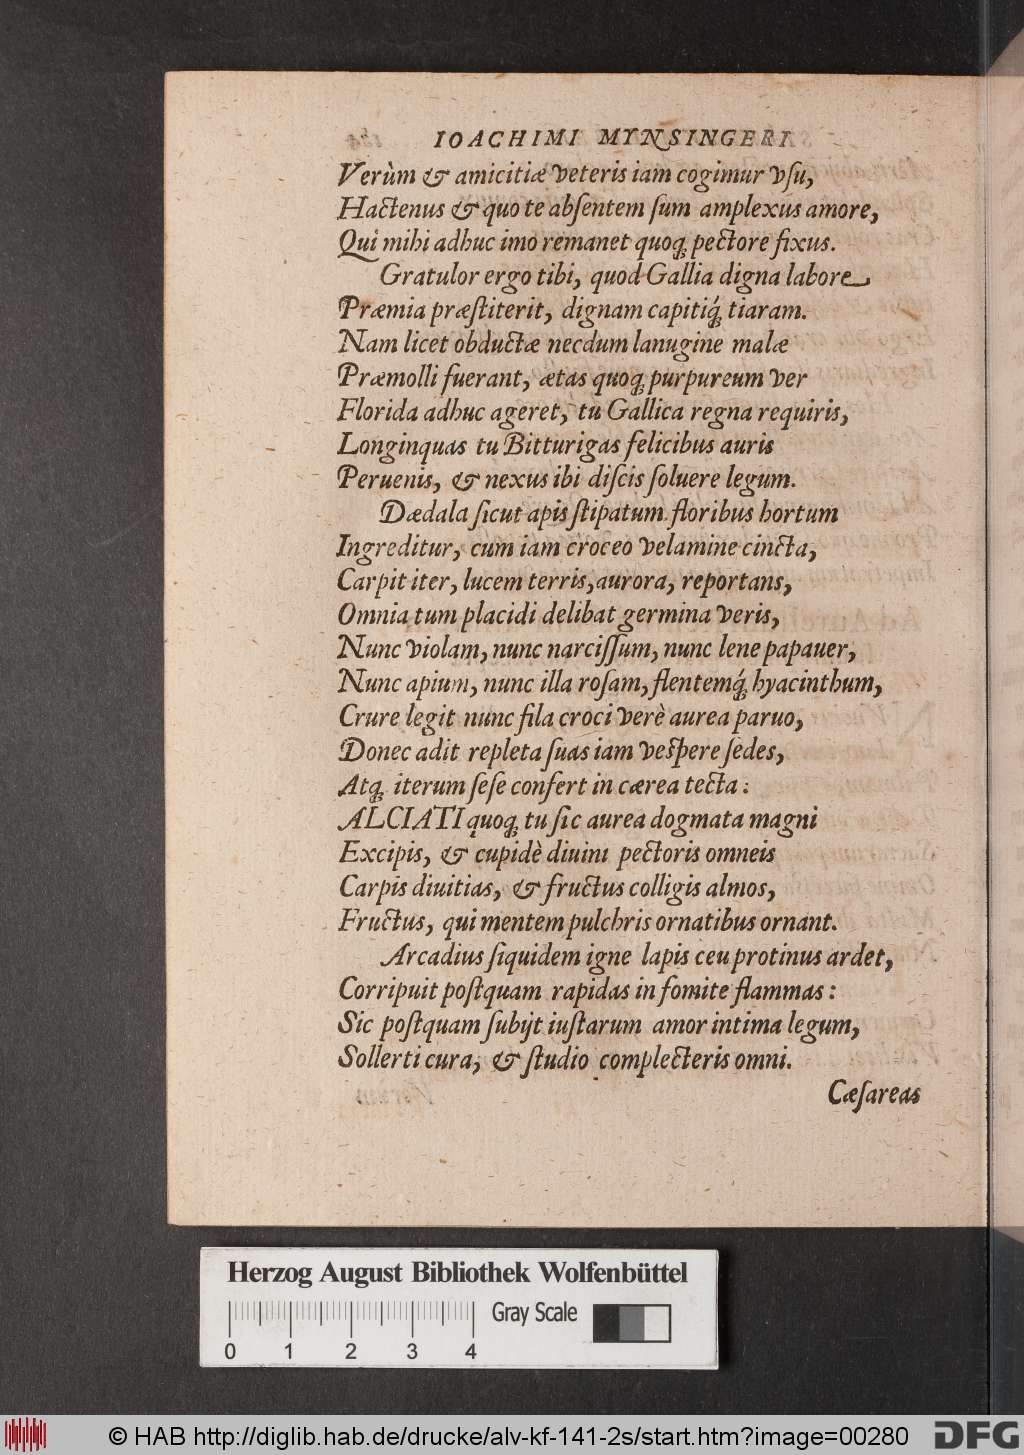 IOACHIMI MYNSINGERI
Verùm & amicitiæ veteris iam cogimur vſu,
Hactenus & quo te abſentem ſum amplexus amore,
Qui mihi adhuc imo remanet quoq́ꝫ pectore fixus.
Gratulor ergo tibi, quod Gallia digna labore
Præmia præſtiterit, dignam capitiq́ꝫ tiaram.
Nam licet obductæ necdum lanugine malæ
Præmolli fuerant, ætas quoqꝫ purpureum ver
Florida adhuc ageret, tu Gallica regna requiris,
Longinquas tu Bitturigas felicibus auris
Peruenis, & nexus ibi diſcis ſoluere legum.
Dædala ſicut apis ſtipatum floribus hortum
Ingreditur, cum iam croceo velamine cincta,
Carpit iter, lucem terris, aurora, reportans,
Omnia tum placidi delibat germina veris,
Nunc violam, nunc narciſſum, nunc lene papauer,
Nunc apium, nunc illa roſam, flentemq́ꝫ hyacinthum,
Crure legit nunc fila croci verè aurea paruo,
Donec adit repleta ſuas iam veſpere ſedes,
Atqꝫ iterum ſeſe confert in cærea tecta:
ALCIATI quoqꝫ tu ſic aurea dogmata magni
Excipis, & cupidè diuini pectoris omneis
Carpis diuitias, & fructus colligis almos,
Fructus, qui mentem pulchris ornatibus ornant.
Arcadius ſiquidem igne lapis ceu protinus ardet,
Corripuit poſtquam rapidas in fomite flammas:
Sic poſtquam ſubijt iuſtarum amor intima legum,
Sollerti cura, & ſtudio complecteris omni.
Cæſareas
Herzog August Bibliothek Wolfenbüttel
Gray Scale
0 1 2 3 4
© HAB http://diglib.hab.de/drucke/alv-kf-141-2s/start.htm?image=00280
DFG